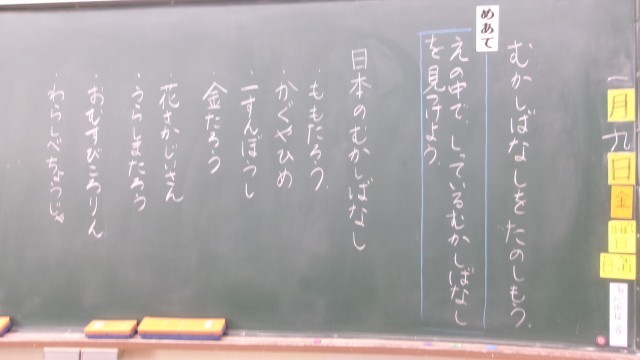 一月九日金曜日
むかしばなしをたのしもう。
めあて
えの中で、しっているむかしばなし
を見つけよう。
日本のむかしばなし
・ももたろう
・かぐやひめ
・一すんぼうし
・金たろう
・花さかじいさん
・うらしまたろう
・おむすびころりん
・わらしべちょうじゃ